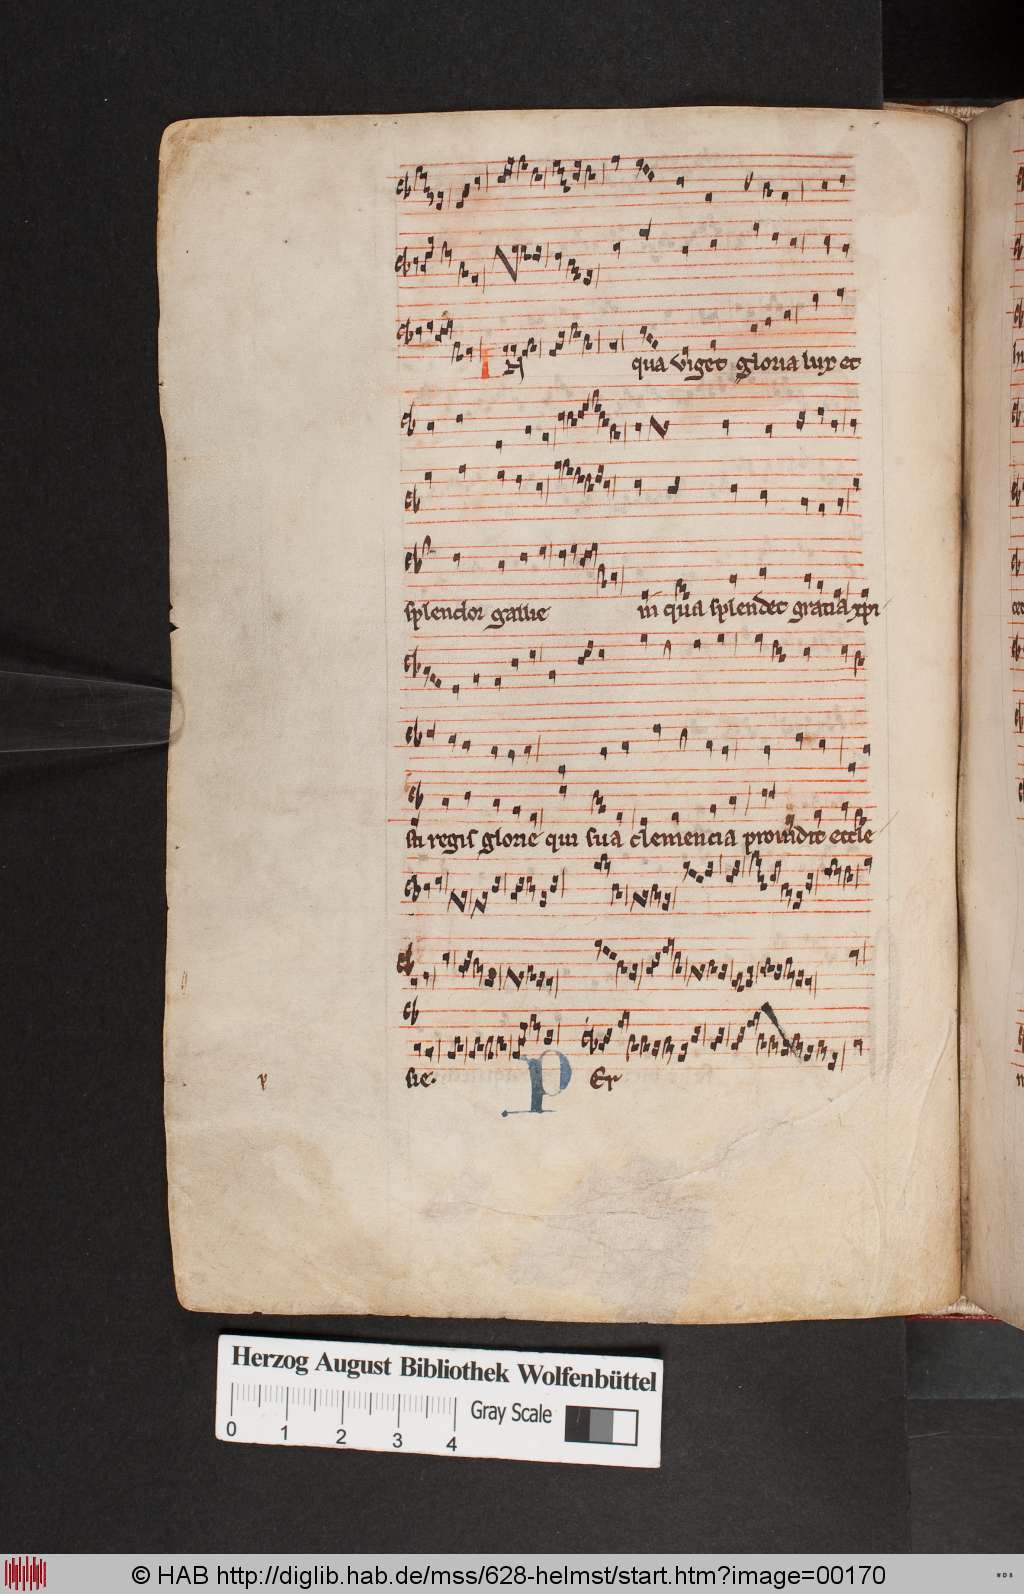 IN qua viget gloria lux et
splendor gallie in qua splendet gratia xpi
sti regis glorie qui sua clemencia prouidit eccle
sie. P Er
Herzog August Bibliothek Wolfenbüttel
Gray Scale
0 1 2 3 4
© HAB http://diglib.hab.de/mss/628-helmst/start.htm?image=00170